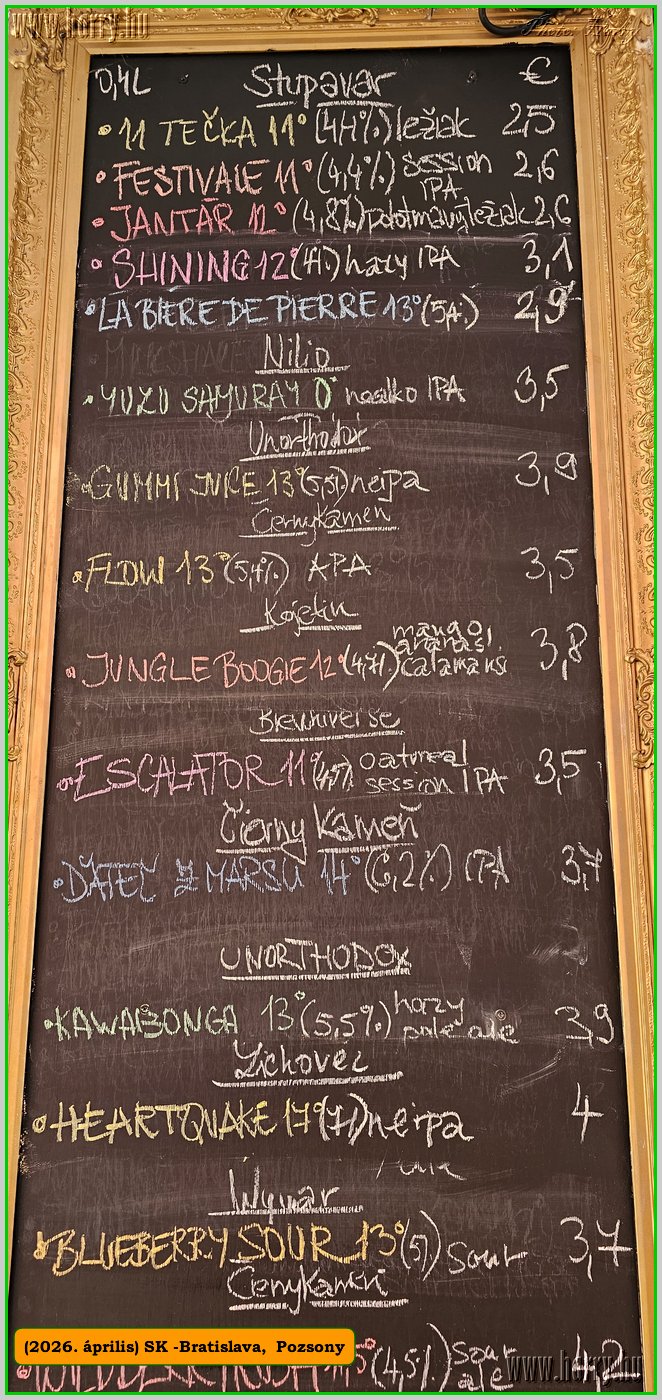 www.horry.hu
0,4L Stupavar €
• 11 TEČKA 11° (4,4%) ležiak 2,5
• FESTIVALE 11° (4,4%) session IPA 2,6
• JANTÁR 12° (4,8%) polotmavý ležiak 2,6
• SHINING 12° hazy IPA 3,1
• LA BIÈRE DE PIERRE 13° (5%) 2,9
Nilio
• YUZU SAMURAY 0° nealko IPA 3,5
Unorthodox
• GUMMI JUICE 13° (5,5%) neipa 3,9
Černykameň
• FLOW 13° (5,4%) APA 3,5
Kojetín
• JUNGLE BOOGIE 12° (4,7%) mango, ananas, calamansi 3,8
Brewniverse
• ESCALATOR 11° (4,5%) oatmeal session IPA 3,5
Čierny Kameň
• Z MARSU 14° (6,2%) IPA 3,7
UNORTHODOX
• KAWABONGA 13° (5,5%) hazy pale ale 3,9
Zichovec
• HEARTQUAKE 17° (7%) neipa 4
Wywar
• BLUEBERRY SOUR 13° (5%) Sour 3,7
(4,5%) sour ale 4,2
(2026. április) SK -Bratislava, Pozsony
www.horry.hu